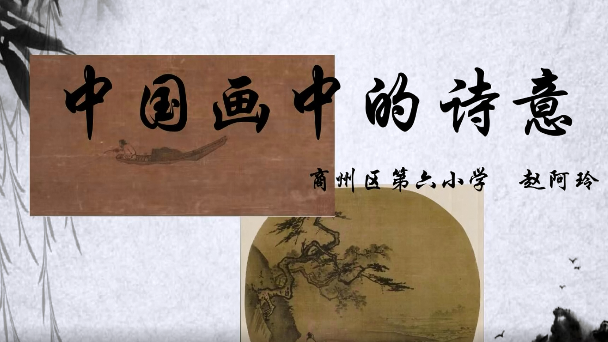 中国画中的诗意
商州区第六小学 赵阿玲